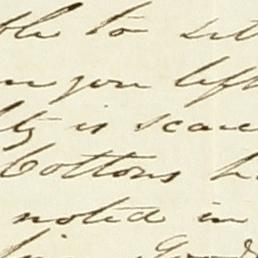 ble to sit
you left
ty is scarc
Cottons h
noted in
Good